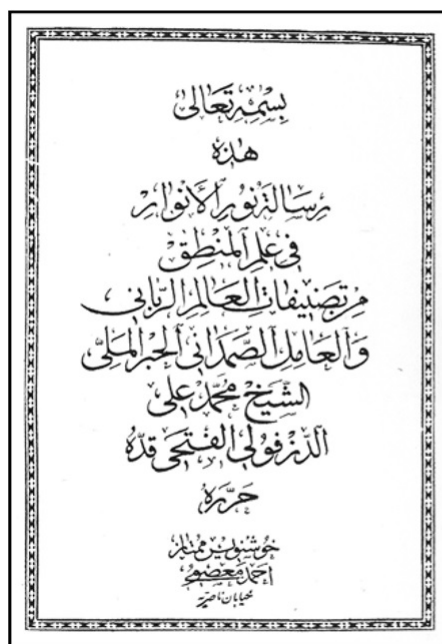 بسمه تعالی
هذه
رسالة نور الأنوار
فی علم المنطق
من تصنیفات العالم الربانی
والعامل الصمدانی الحبر الملی
الشیخ محمد علی
الدزفولی الفتحی قده
حرره
خوشنویس ممتاز
احمد معصومی
خیابان ناصر